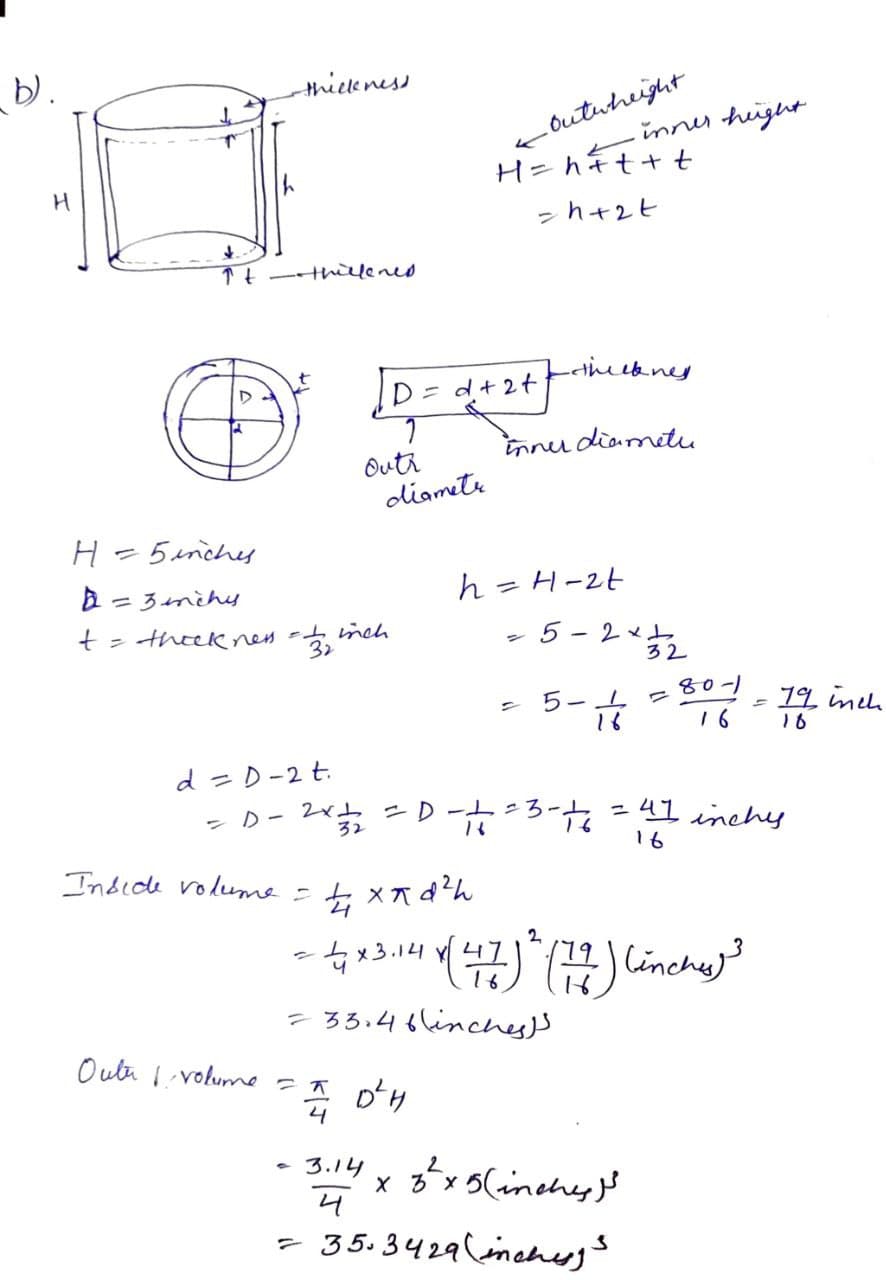 b).
thickness
outerheight
inner height
H = h + t + t
= h + 2t
H
h
t
t
D
d
D = d + 2t
thicknes
inner diameter
outer
diameter
H = 5 inches
D = 3 inches
t = thickness = 1/32 inch
h = H - 2t
= 5 - 2 × 1/32
= 5 - 1/16 = 80-1/16 = 79/16 inch
d = D - 2t.
= D - 2×1/32 = D - 1/16 = 3 - 1/16 = 47/16 inches
Inside volume = 1/4 × π d²h
= 1/4 × 3.14 × (47/16)² (79/16) (inches)³
= 33.46 (inches)³
Outer volume = π/4 D²H
= 3.14/4 × 3² × 5 (inches)³
= 35.3429 (inches)³